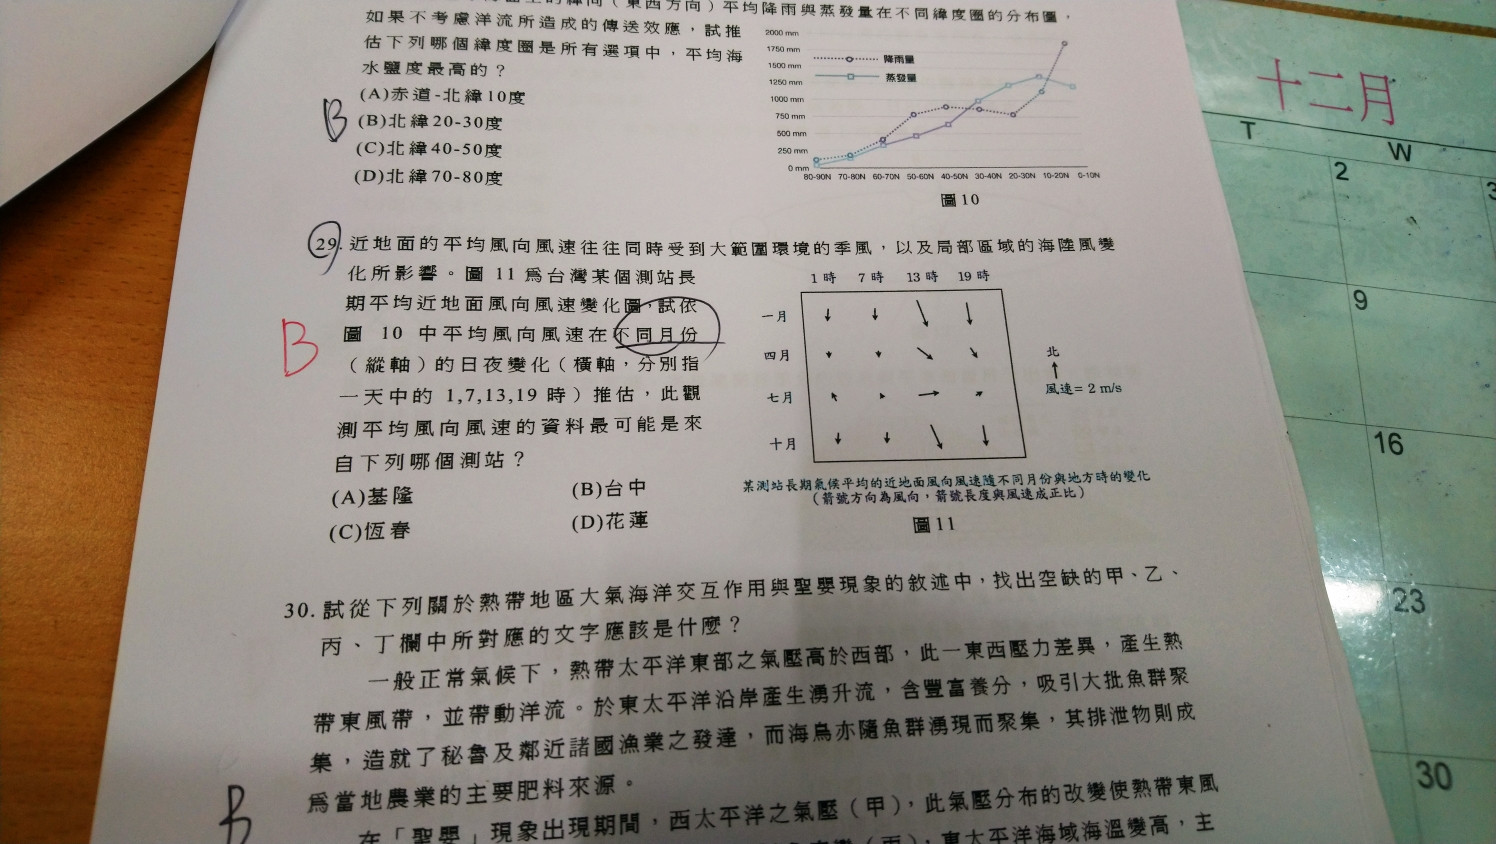 (東西方向)平均降雨與蒸發量在不同緯度圈的分布圖，
如果不考慮洋流所造成的傳送效應，試推
估下列哪個緯度圈是所有選項中，平均海
水鹽度最高的？
(A)赤道-北緯10度
B
(B)北緯20-30度
(C)北緯40-50度
(D)北緯70-80度
2000 mm
1750 mm
1500 mm
1250 mm
1000 mm
750 mm
500 mm
250 mm
0 mm
降雨量
蒸發量
80-90N 70-80N 60-70N 50-60N 40-50N 30-40N 20-30N 10-20N 0-10N
圖10
29.近地面的平均風向風速往往同時受到大範圍環境的季風，以及局部區域的海陸風變
化所影響。圖 11 為台灣某個測站長
期平均近地面風向風速變化圖，試依
圖 10 中平均風向風速在不同月份
B
（縱軸）的日夜變化（橫軸，分別指
一天中的 1,7,13,19 時）推估，此觀
測平均風向風速的資料最可能是來
自下列哪個測站？
(A)基隆 (B)台中
(C)恆春 (D)花蓮
1時 7時 13時 19時
一月
四月
七月
十月
北
風速= 2 m/s
某測站長期氣候平均的近地面風向風速隨不同月份與地方時的變化
（箭號方向為風向，箭號長度與風速成正比）
圖11
30.試從下列關於熱帶地區大氣海洋交互作用與聖嬰現象的敘述中，找出空缺的甲、乙、
丙、丁欄中所對應的文字應該是什麼？
一般正常氣候下，熱帶太平洋東部之氣壓高於西部，此一東西壓力差異，產生熱
帶東風帶，並帶動洋流。於東太平洋沿岸產生湧升流，含豐富養分，吸引大批魚群聚
集，造就了秘魯及鄰近諸國漁業之發達，而海鳥亦隨魚群湧現而聚集，其排泄物則成
為當地農業的主要肥料來源。
B
在「聖嬰」現象出現期間，西太平洋之氣壓（甲），此氣壓分布的改變使熱帶東風
（丙），東太平洋海域海溫變高，主
十二月
T W
2 3
9
16
23
30